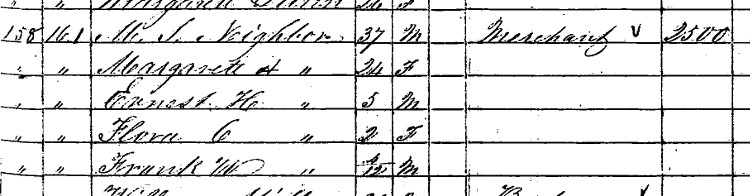 " " Margaret 24 F
158 161 M. S. Neighbor 37 M Merchant v 2500
" " Margarett A " 24 F
" " Ernest H " 5 M
" " Flora C " 2 F
" " Frank W " /12 M